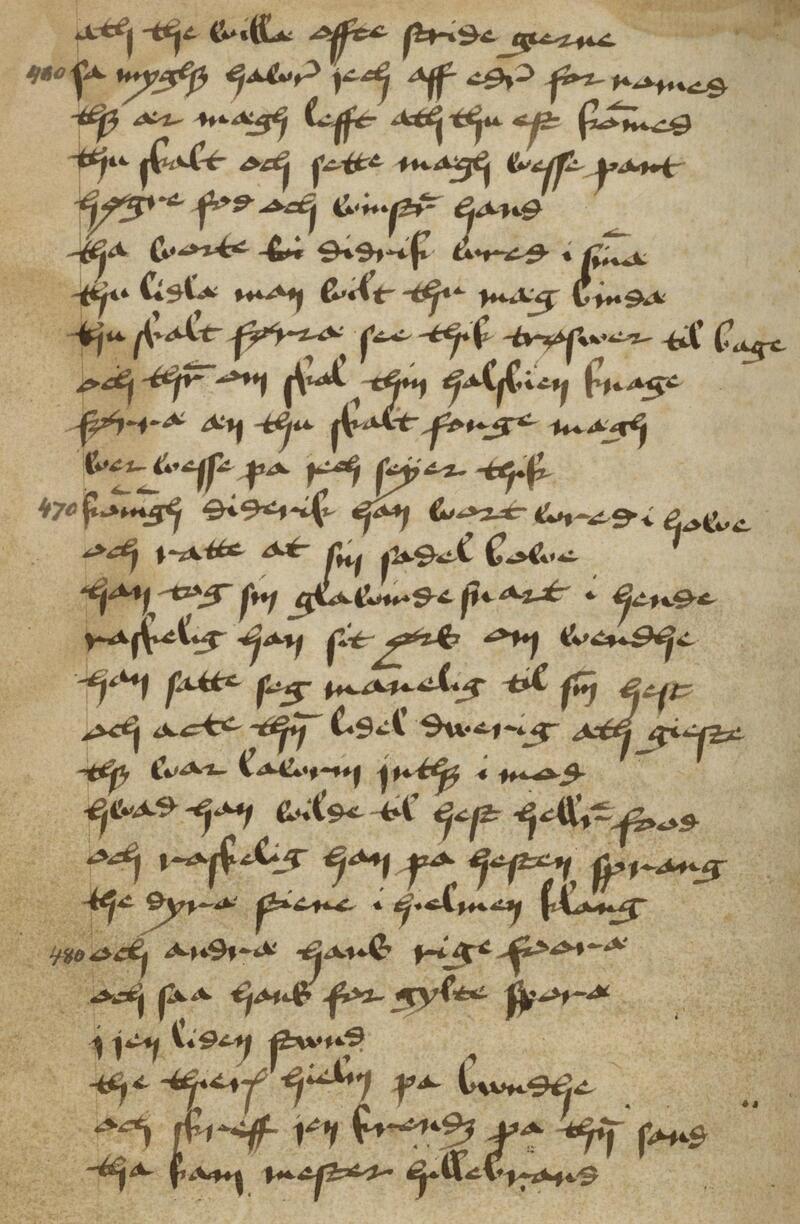 ath the willæ offte stride gierne
480 sa myghet hawer iech aff eder for nomed
thet ær mægh lefft ath thu est komed
thu skalt och sette mægh wesse pant
høgre fod och winstre hand
tha worte didrik wred i sinæ
thu lislæ man wilt thu mæg bindæ
thu skalt førræ see thik trøswer til bage
och ther om skal thin halsbien knage
førræ æn thu skalt fonge mægh
wer wesse pa iech seyer thik
470 koningh diderik han wort wred i howe
och ratte at sin sadel bowe
han tog sin glawinde snart i hende
raskelig han sit ørs om wendhe
han satte seg mannelig til sin hest
och acte then lidel dwerig ath gieste
thet war lawrin inthet i mod
hwad han wilde til hest heller food
och raskelig han pa hesten sprang
the dyræ stiene i hielmen klang
480 och andræ hans rige fooræ
och saa hans for gylte sporæ
i ien liden stwnd
the thieres hielm pa bwndhe
och skreff ien krendz pa then sand
tha kam mester hillebrand